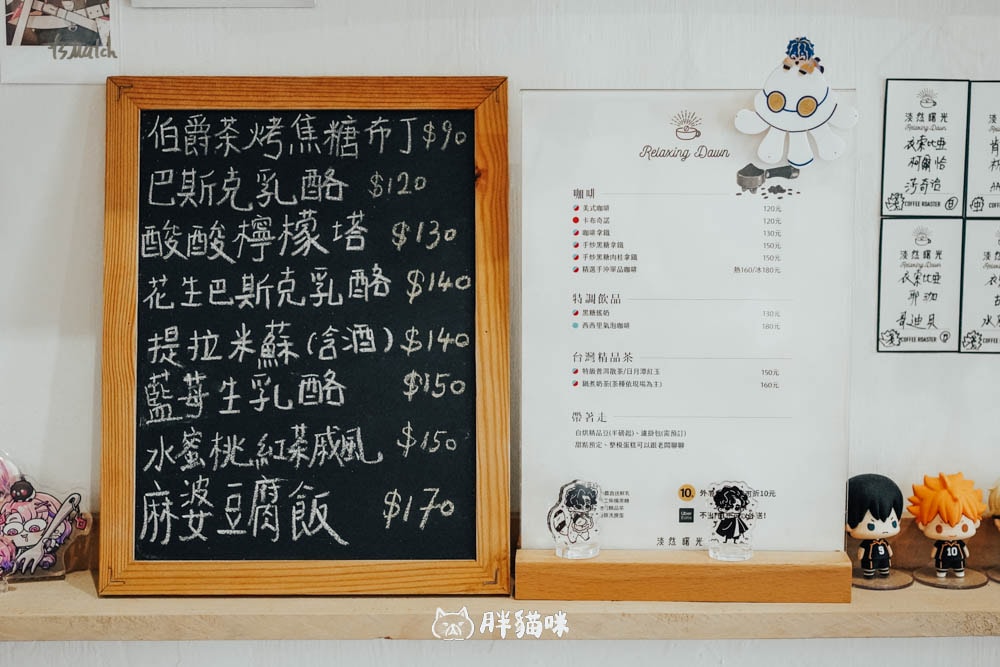 伯爵茶烤焦糖布丁$90
巴斯克乳酪 $120
酸酸檸檬塔 $130
花生巴斯克乳酪 $140
提拉米蘇(含酒)$140
藍莓生乳酪 $150
水蜜桃紅茶戚風 $150
麻婆豆腐飯 $170
Relaxing Dawn
咖啡
美式咖啡 120元
卡布奇諾 120元
咖啡拿鐵 130元
手炒黑糖拿鐵 150元
手炒黑糖肉桂拿鐵 150元
精選手沖單品咖啡 熱160/冰180元
特調飲品
黑糖搖奶 130元
西西里氣泡咖啡 180元
台灣精品茶
特級普洱散茶/日月潭紅玉 150元
鍋煮奶茶(茶種依現場為主) 160元
帶著走
自烘精品豆(半磅起)、濾掛包(需預訂)
甜點預定、整模蛋糕可以跟老闆聊聊
10元
外 折10元
Uber Eats
不出
淡然曙光
淡然曙光
Relaxing Dawn
衣索比亞
柯爾怡
COFFEE ROASTER
淡然曙光
Relaxing Dawn
衣索比亞
耶加
哥迪貝
COFFEE ROASTER
9
10
胖貓咪